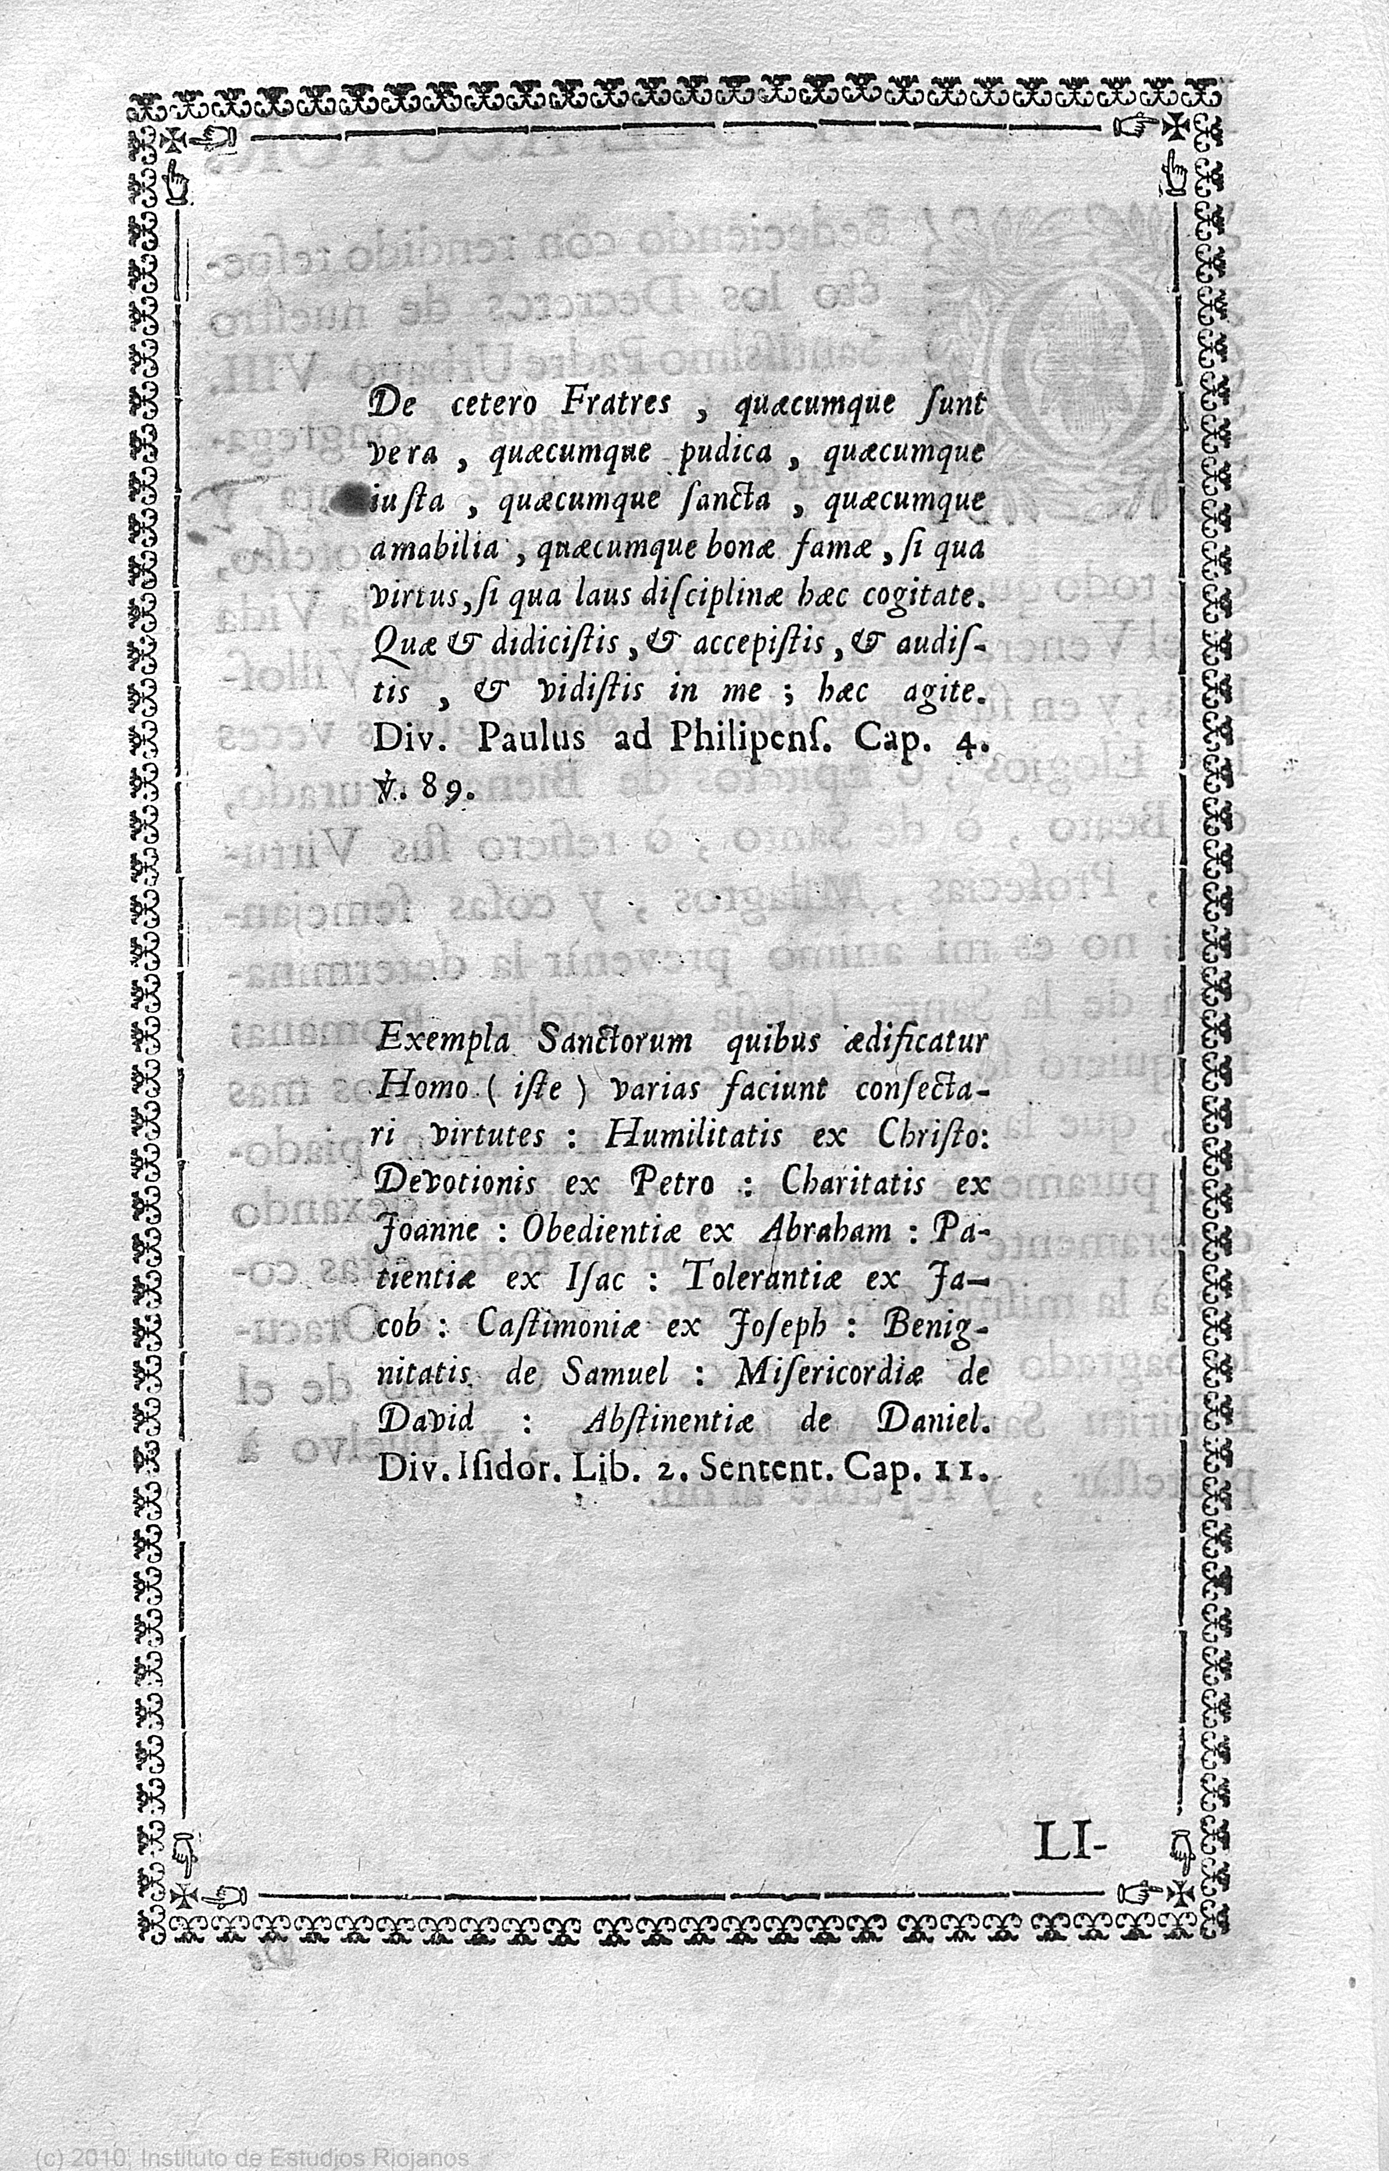 De ceterò Fratres , quæcumque ſunt
vera , quæcumque pudica , quæcumque
iuſta , quæcumque ſancta , quæcumque
amabilia , quæcumque bonæ famæ , ſi qua
virtus, ſi qua laus diſciplinæ hæc cogitate.
Quæ & didiciſtis , & accepiſtis , & audiſ-
tis , & vidiſtis in me ; hæc agite.
Div. Paulus ad Philipenſ. Cap. 4.
℣. 89.
Exempla Sanctorum quibus ædificatur
Homo ( iſte ) varias faciunt conſecta-
ri virtutes : Humilitatis ex Chriſto:
Devotionis ex Petro : Charitatis ex
Joanne : Obedientiæ ex Abraham : Pa-
tientiæ ex Iſac : Tolerantiæ ex Ja-
cob : Caſtimoniæ ex Joſeph : Benig-
nitatis de Samuel : Miſericordiæ de
David : Abſtinentiæ de Daniel.
Div. Iſidor. Lib. 2. Sentent. Cap. 11.
LI-
(c) 2010, Instituto de Estudios Riojanos